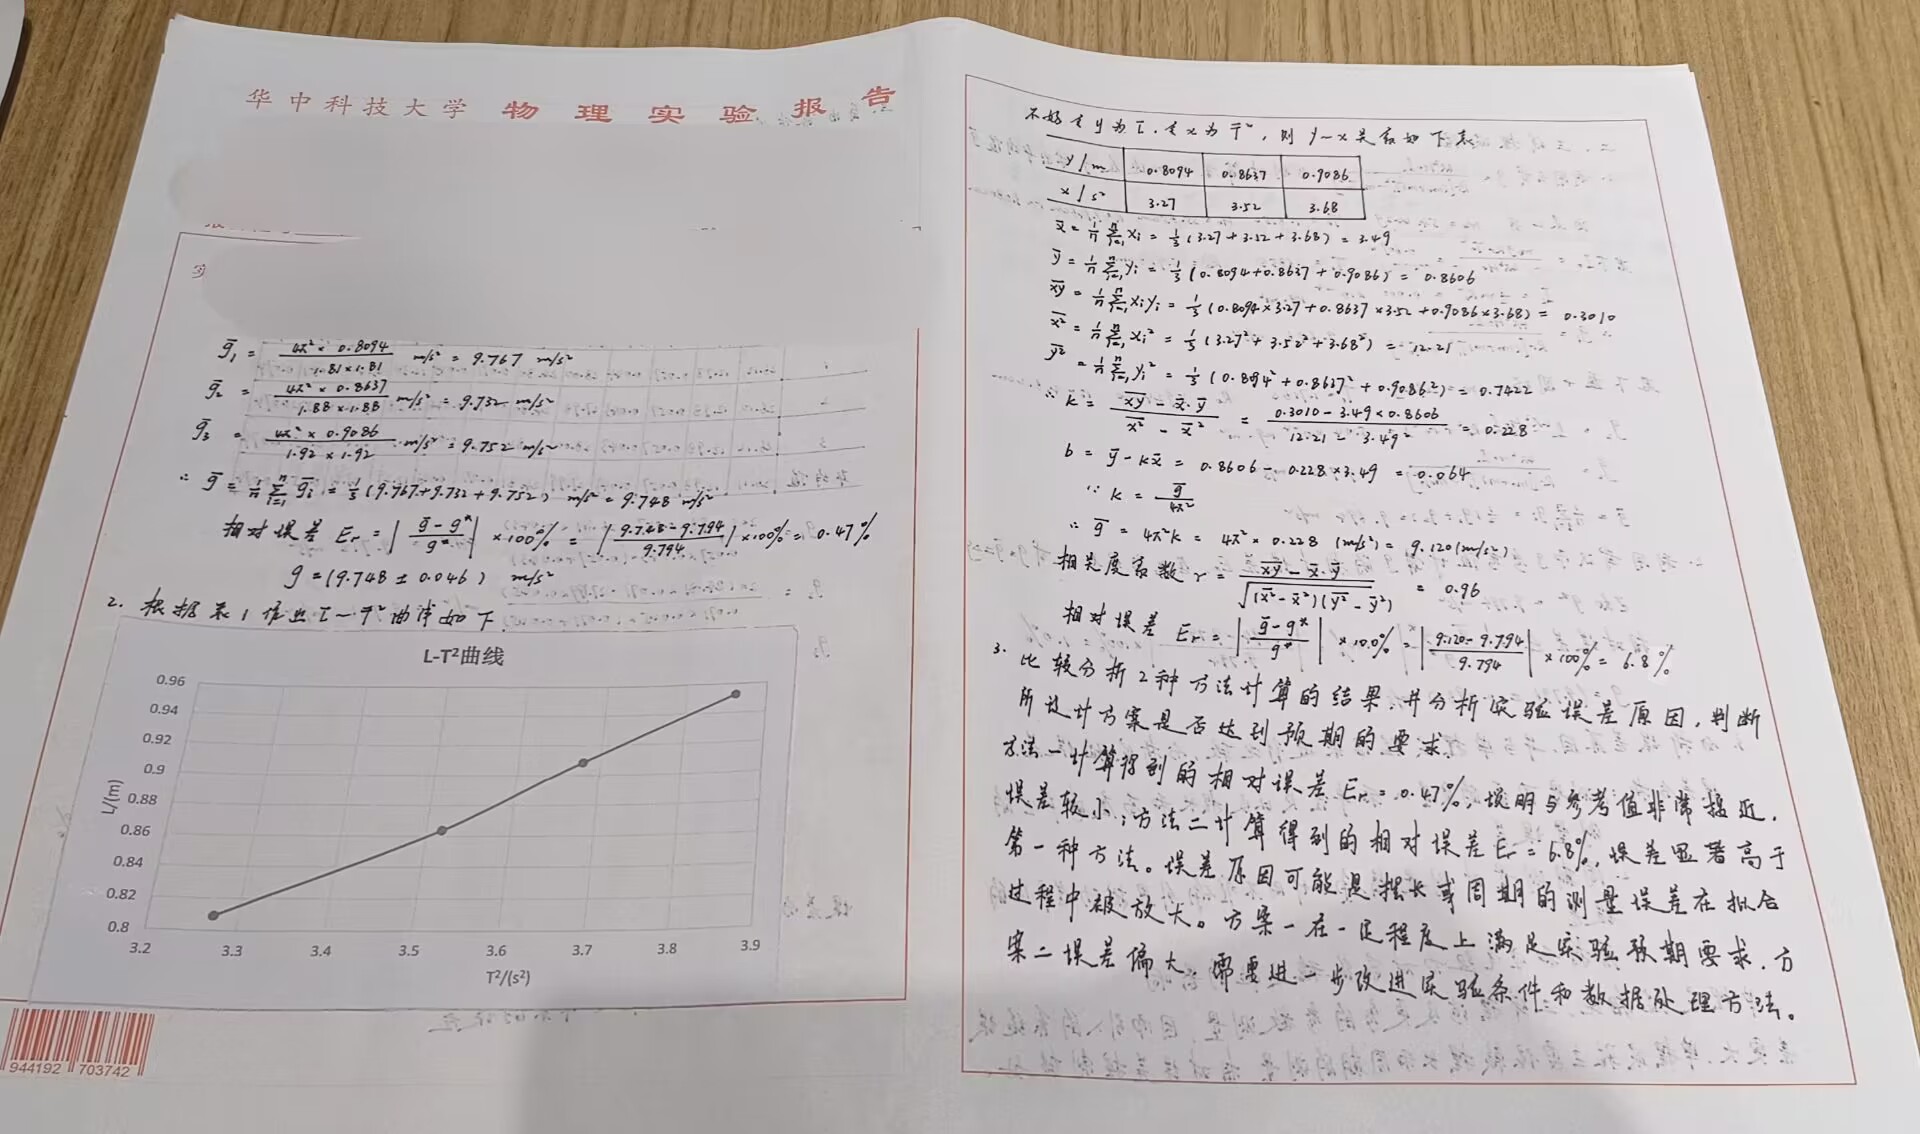 华中科技大学 物理实验报告
ḡ₁ = 4π²×0.8094 / 1.81×1.81 m/s² = 9.767 m/s²
ḡ₂ = 4π²×0.8637 / 1.88×1.88 m/s² = 9.732 m/s²
ḡ₃ = 4π²×0.9086 / 1.92×1.92 m/s² = 9.752 m/s²
∴ ḡ = 1/n Σⁿᵢ₌₁ ḡᵢ = 1/3 (9.767+9.732+9.752) m/s² = 9.748 m/s²
相对误差 Er = |ḡ-g* / g*| ×100% = |9.748-9.794 / 9.794| ×100% = 0.47%
g = (9.748 ± 0.046) m/s²
2. 根据表1作出L̄-T̄²曲线如下
L-T²曲线
L/(m)
0.96
0.94
0.92
0.9
0.88
0.86
0.84
0.82
0.8
3.2 3.3 3.4 3.5 3.6 3.7 3.8 3.9
T²/(s²)
944192 703742
不妨令y为L̄,令x为T̄²,则y~x关系如下表
y/m 0.8094 0.8637 0.9086
x/s² 3.27 3.52 3.68
x̄ = 1/n Σⁿᵢ₌₁ xᵢ = 1/3 (3.27+3.52+3.68) = 3.49
ȳ = 1/n Σⁿᵢ₌₁ yᵢ = 1/3 (0.8094+0.8637+0.9086) = 0.8606
x̄ȳ = 1/n Σⁿᵢ₌₁ xᵢyᵢ = 1/3 (0.8094×3.27+0.8637×3.52+0.9086×3.68) = 0.3010
x̄² = 1/n Σⁿᵢ₌₁ xᵢ² = 1/3 (3.27²+3.52²+3.68²) = 12.21
ȳ² = 1/n Σⁿᵢ₌₁ yᵢ² = 1/3 (0.894²+0.8637²+0.9086²) = 0.7422
∴ k = x̄ȳ - x̄·ȳ / x̄² - x̄² = 0.3010-3.49×0.8606 / 12.21-3.49² = 0.228
b = ȳ-kx̄ = 0.8606-0.228×3.49 = 0.064
∵ k = ḡ / 4π²
∴ ḡ = 4π²k = 4π²×0.228 (m/s²) = 9.120(m/s²)
相关度系数 r = x̄ȳ - x̄·ȳ / √(x̄²-x̄²)(ȳ²-ȳ²) = 0.96
相对误差 Er = |ḡ-g* / g*| ×100% = |9.120-9.794 / 9.794| ×100% = 6.8%
3. 比较分析2种方法计算的结果,并分析实验误差原因,判断
所设计方案是否达到预期的要求.
方法一计算得到的相对误差Er=0.47%,说明与参考值非常接近,
误差较小;方法二计算得到的相对误差Er=6.8%,误差显著高于
第一种方法。误差原因可能是摆长或周期的测量误差在拟合
过程中被放大。方案一在一定程度上满足实验预期要求,方
案二误差偏大,需要进一步改进实验条件和数据处理方法。